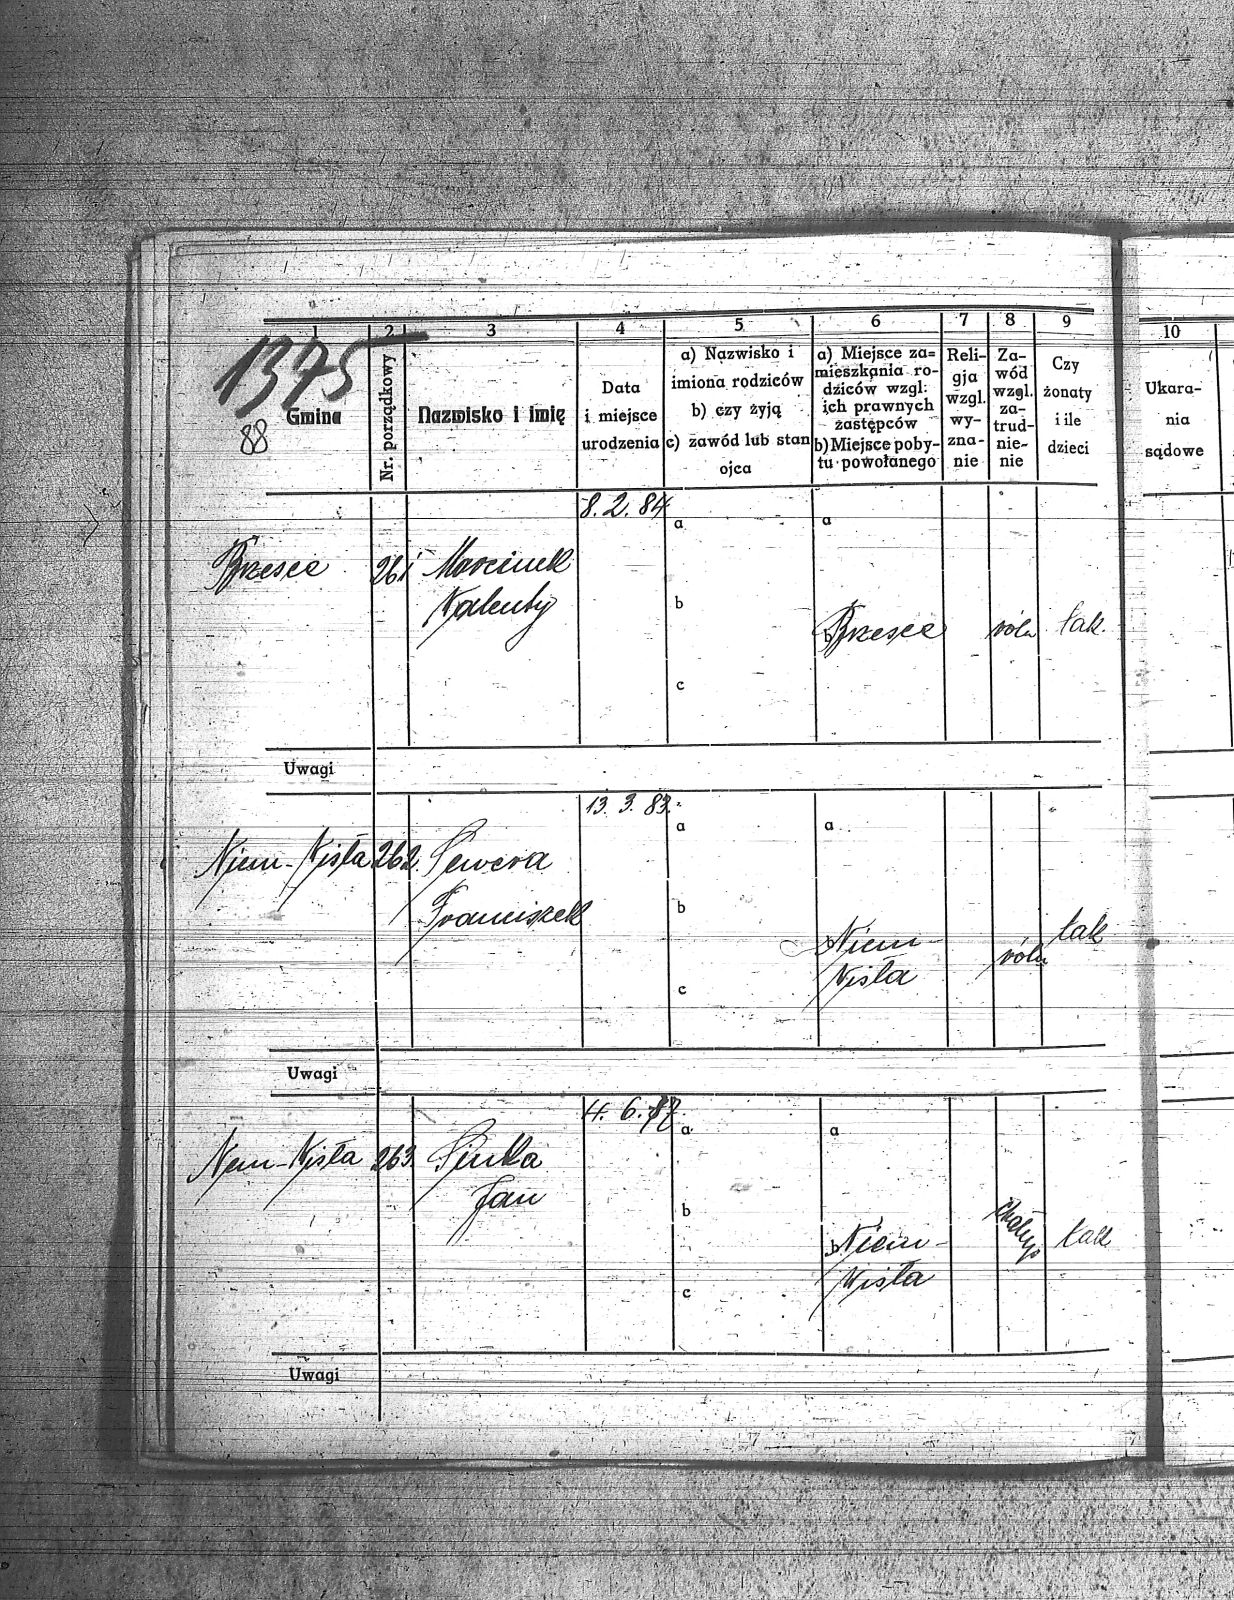 1375
88
1 2 3 4 5 6 7 8 9 10
Gmina
Nr. porządkowy
Nazwisko i imię
Data
i miejsce
urodzenia
a) Nazwisko i
imiona rodziców
b) czy żyją
c) zawód lub stan
ojca
a) Miejsce za=
mieszkania ro-
dziców wzgl.
ich prawnych
zastępców
b) Miejsce poby-
tu powołanego
Reli-
gja
wzgl.
wy-
zna-
nie
Za-
wód
wzgl.
za-
trud-
nie-
nie
Czy
żonaty
i ile
dzieci
Ukara-
nia
sądowe
8. 2. 84
a a
Brzesce 261 Marcinek
Walenty
b
b Brzesce roln tak.
c
Uwagi
13. 3. 83.
a a
Niem-Wisła 262. Sewera
Franciszek
b
b Niem-
Wisła
roln
tak
c
Uwagi
4. 6. 87.
a a
Niem-Wisła 263. Sinka
Jan
b
b Niem-
Wisła
tak
c
Uwagi